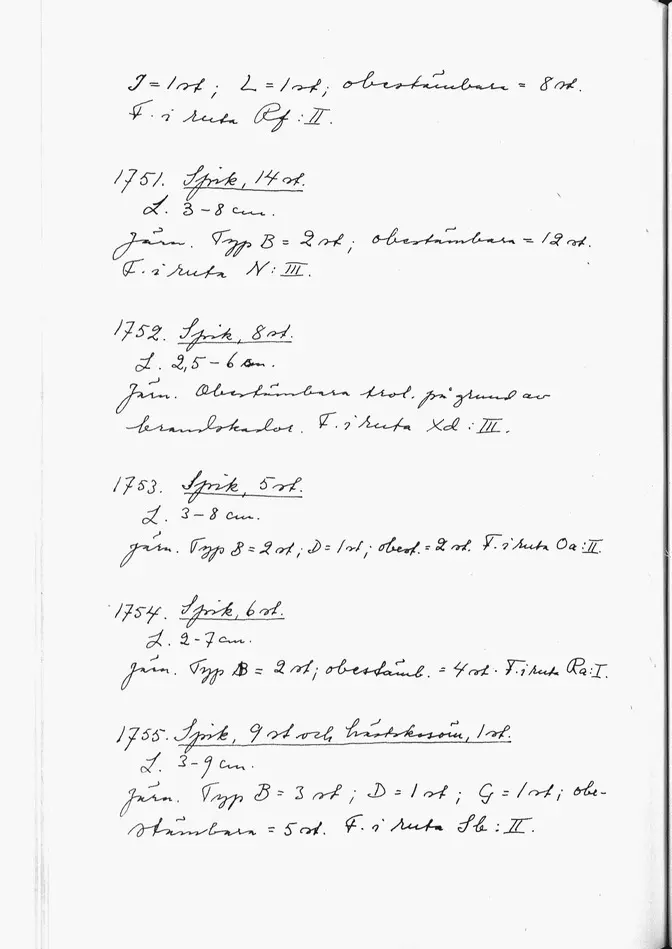 J = 1 st; L = 1 st; obestämbara = 8 st.
F. i ruta Rf : II.
1751. Spik, 14 st.
L. 3 – 8 cm.
Järn. Typ B = 2 st; obestämbara = 12 st.
F. i ruta N : III.
1752. Spik, 8 st.
L. 2,5 – 6 cm.
Järn. Obestämbara trol. på grund av
brandskador. F. i ruta Xd : III.
1753. Spik, 5 st.
L. 3 – 8 cm.
Järn. Typ B = 2 st; D = 1 st; obest. = 2 st. F. i ruta Oa : II.
1754. Spik, 6 st.
L. 2 - 7 cm.
Järn. Typ B = 2 st; obestämb. = 4 st. F. i ruta Ra : I.
1755. Spik, 9 st och hästskosöm, 1 st.
L. 3 - 9 cm.
Järn. Typ B = 3 st; D = 1 st; G = 1 st; obe-
stämbara = 5 st. F. i ruta Sb : II.